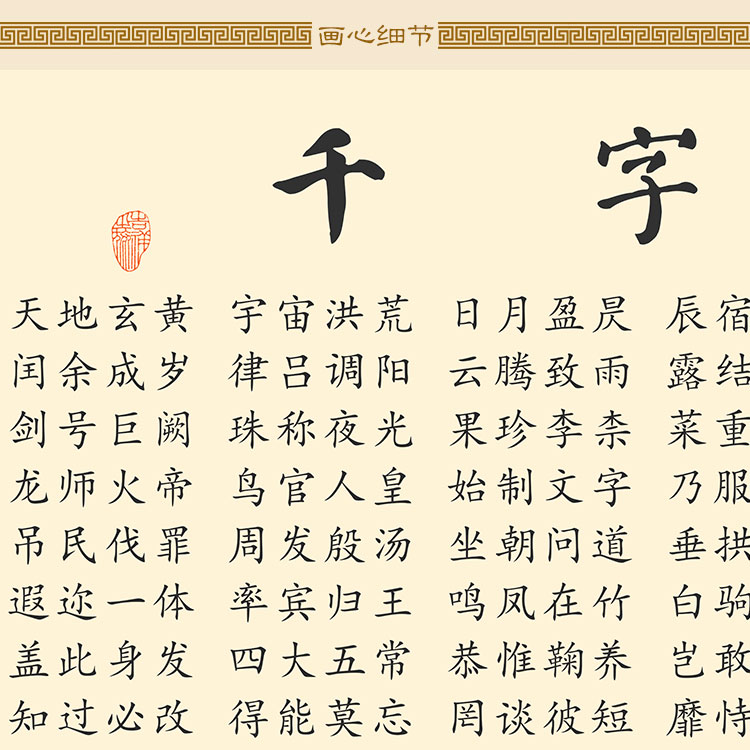 画心细节
千 字
天地玄黄 宇宙洪荒 日月盈昃 辰宿
闰余成岁 律吕调阳 云腾致雨 露结
剑号巨阙 珠称夜光 果珍李柰 菜重
龙师火帝 鸟官人皇 始制文字 乃服
吊民伐罪 周发殷汤 坐朝问道 垂拱
遐迩一体 率宾归王 鸣凤在竹 白驹
盖此身发 四大五常 恭惟鞠养 岂敢
知过必改 得能莫忘 罔谈彼短 靡恃